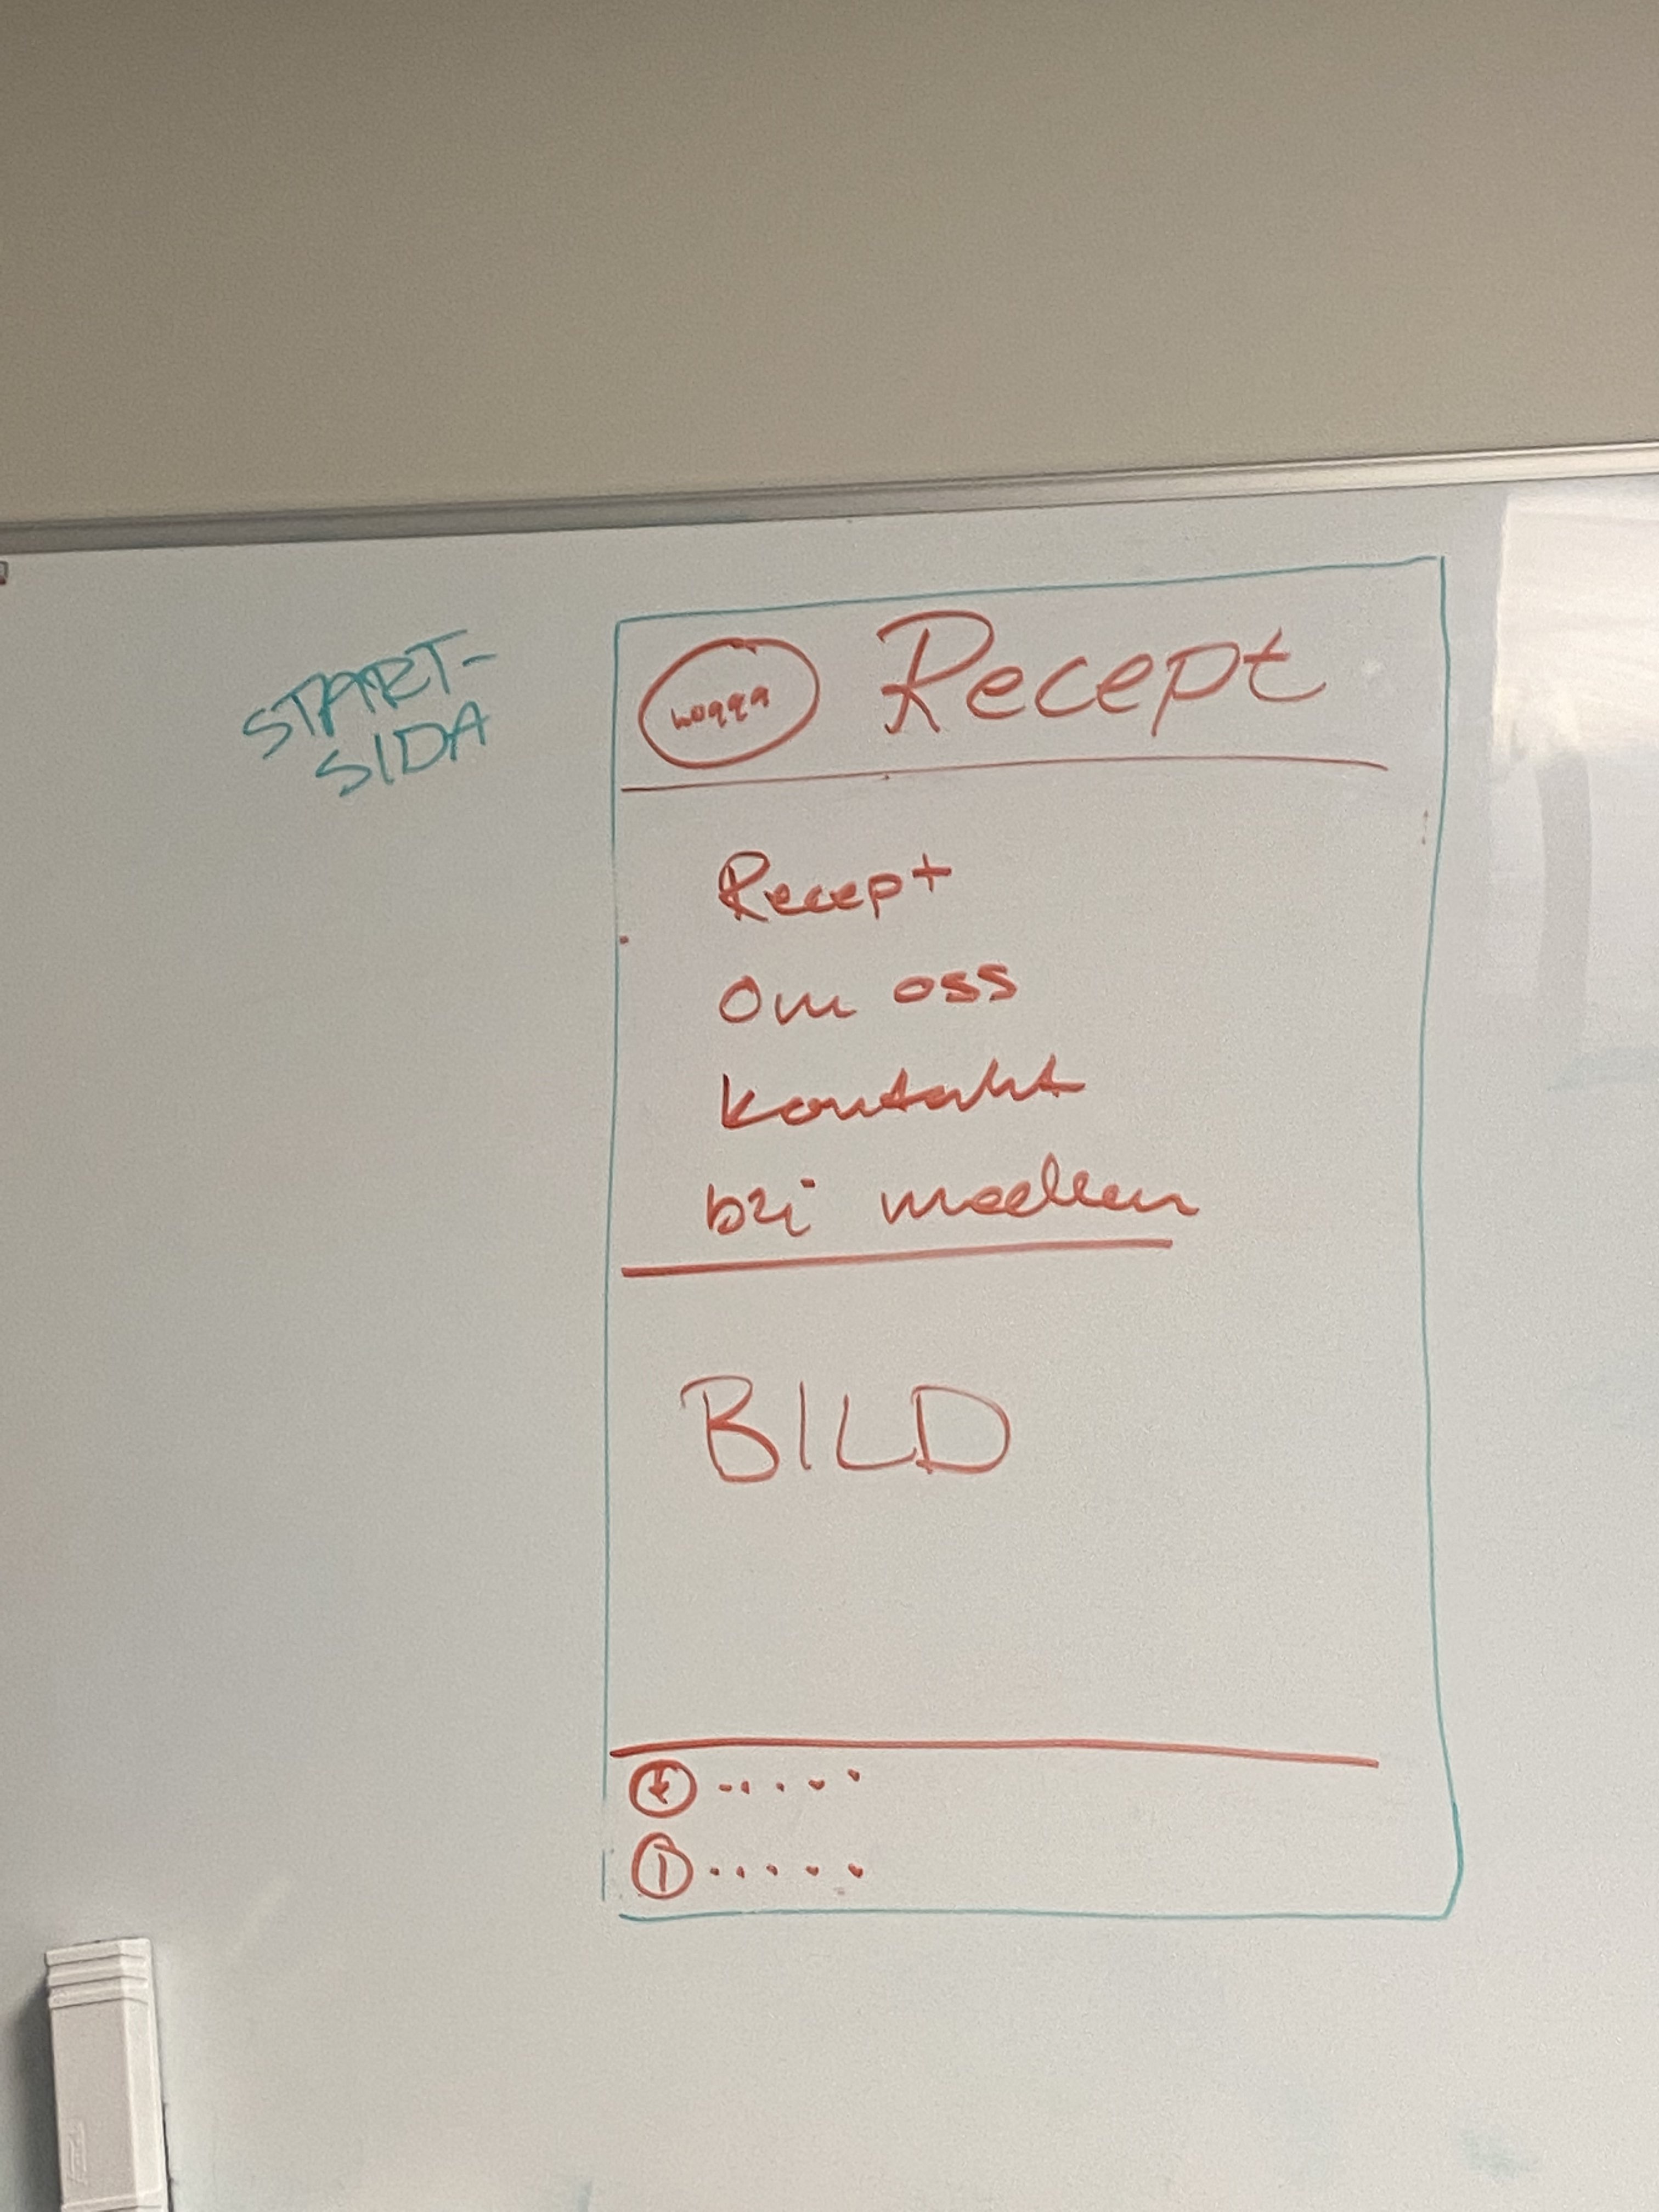 START-
SIDA
Recept
Recept
Om oss
Kontakt
BILD